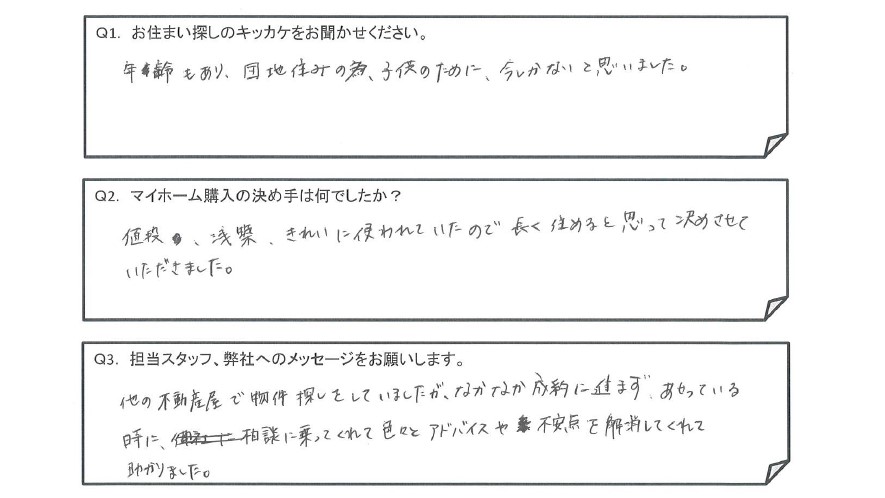 Q1. お住まい探しのキッカケをお聞かせください。
年齢もあり、団地住みの為、子供のために、今しかないと思いました。
Q2. マイホーム購入の決め手は何でしたか？
値段、浅築、きれいに使われていたので長く住めると思って決めさせて
いただきました。
Q3. 担当スタッフ、弊社へのメッセージをお願いします。
他の不動産屋で物件探しをしていましたが、なかなか成約に進まず、あせっている
時に、相談に乗ってくれて色々とアドバイスや不安点を解消してくれて
助かりました。